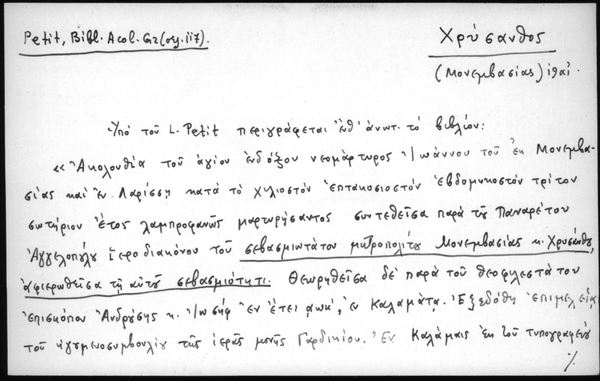 Petit, Bibl. Acol. Gr (σγ. 117).
Χρύσανθος
(Μονεμβασίας)
Ὑπό τοῦ L. Petit περιγράφεται ἔνθ' ἀνωτ. τό βιβλίον:
« Ἀκολουθία τοῦ ἁγίου ἐνδόξου νεομάρτυρος Ἰωάννου τοῦ ἐκ Μονεμβα-
σίας καί ἐν Λαρίσσῃ κατά τό χιλιοστόν ἑπτακοσιοστόν ἑβδομηκοστόν τρίτον
σωτήριον ἔτος λαμπροφανῶς μαρτυρήσαντος συντεθεῖσα παρά τοῦ Παναρέτου
Ἀγγελοπούλου ἱεροδιακόνου τοῦ σεβασμιωτάτου μητροπολίτου Μονεμβασίας κ. Χρυσάνθου,
ἀφιερωθεῖσα τῇ αὐτοῦ σεβασμιότητι. Θεωρηθεῖσα δέ παρά τοῦ θεοφιλεστάτου
ἐπισκόπου Ἀνδρούσης κ. Ἰωσήφ ἐν ἔτει αωκ', ἐν Καλαμάτᾳ. Ἐξεδόθη ἐπιμελείᾳ
τοῦ ἡγουμενοσυμβουλίου τῆς ἱερᾶς μονῆς Γαρδικίου. Ἐν Καλάμαις ἐκ τοῦ τυπογραφείου
%